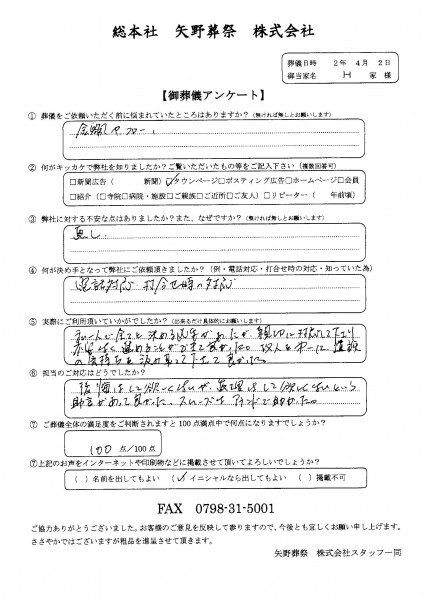 総本社 矢野葬祭 株式会社
葬儀日時 2年 4月 2日
御当家名 H 家 様
【御葬儀アンケート】
① 葬儀をご依頼いただく前に悩まれていたところはありますか？(無ければ無しとお願いします)
金額
② 何がキッカケで弊社を知りましたか？ご覧いただいたもの等をご記入下さい(複数回答可)
□新聞広告( 新聞) ☑タウンページ□ポスティング広告□ホームページ□会員
□紹介(□寺院□病院・施設□ご親族□ご近所□ご友人) □リピーター( 年前頃)
③ 弊社に対する不安な点はありましたか？また、なぜですか？(無ければ無しとお願いします)
無し
④ 何が決め手となって弊社にご依頼頂きましたか？(例・電話対応・打合せ時の対応・知っていた為)
電話対応 打合せ時の対応
⑤ 実際にご利用頂いていかがでしたか？(出来るだけ具体的にお願いします)
私一人で全てを決める必要があったが、親切に対応して下さり
進めることが出来て良かった。故人を第一に、遺族
の気持ちを 下さって良かった。
⑥ 担当のご対応はどうでしたか？
後悔はして欲しくないが無理はして欲しくないという
助言があって良かった。スムーズな で助かった。
⑦ ご葬儀全体の満足度をご判断されますと100点満点中で何点になりますでしょうか？
100 点/100点
⑦上記のお声をインターネットや印刷物などに掲載させて頂いてよろしいでしょうか？
( )名前を出してもよい (✓)イニシャルなら出してもよい ( )掲載不可
FAX 0798-31-5001
ご協力ありがとうございました。お客様のご意見を反映して参りますので、今後とも宜しくお願い申し上げます。
ささやかではございますが粗品を進呈させて頂きます。
矢野葬祭 株式会社スタッフ一同